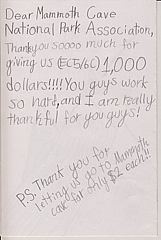 Dear Mammoth Cave
National Park Association,
Thankyou soooo much for
giving us (EC5/6C) 1,000
dollars!!!! You guys work
so hard, and I am really
thankful for you guys!
P.S. Thank you for
letting us go to Mammoth
cave for only $2 each!!